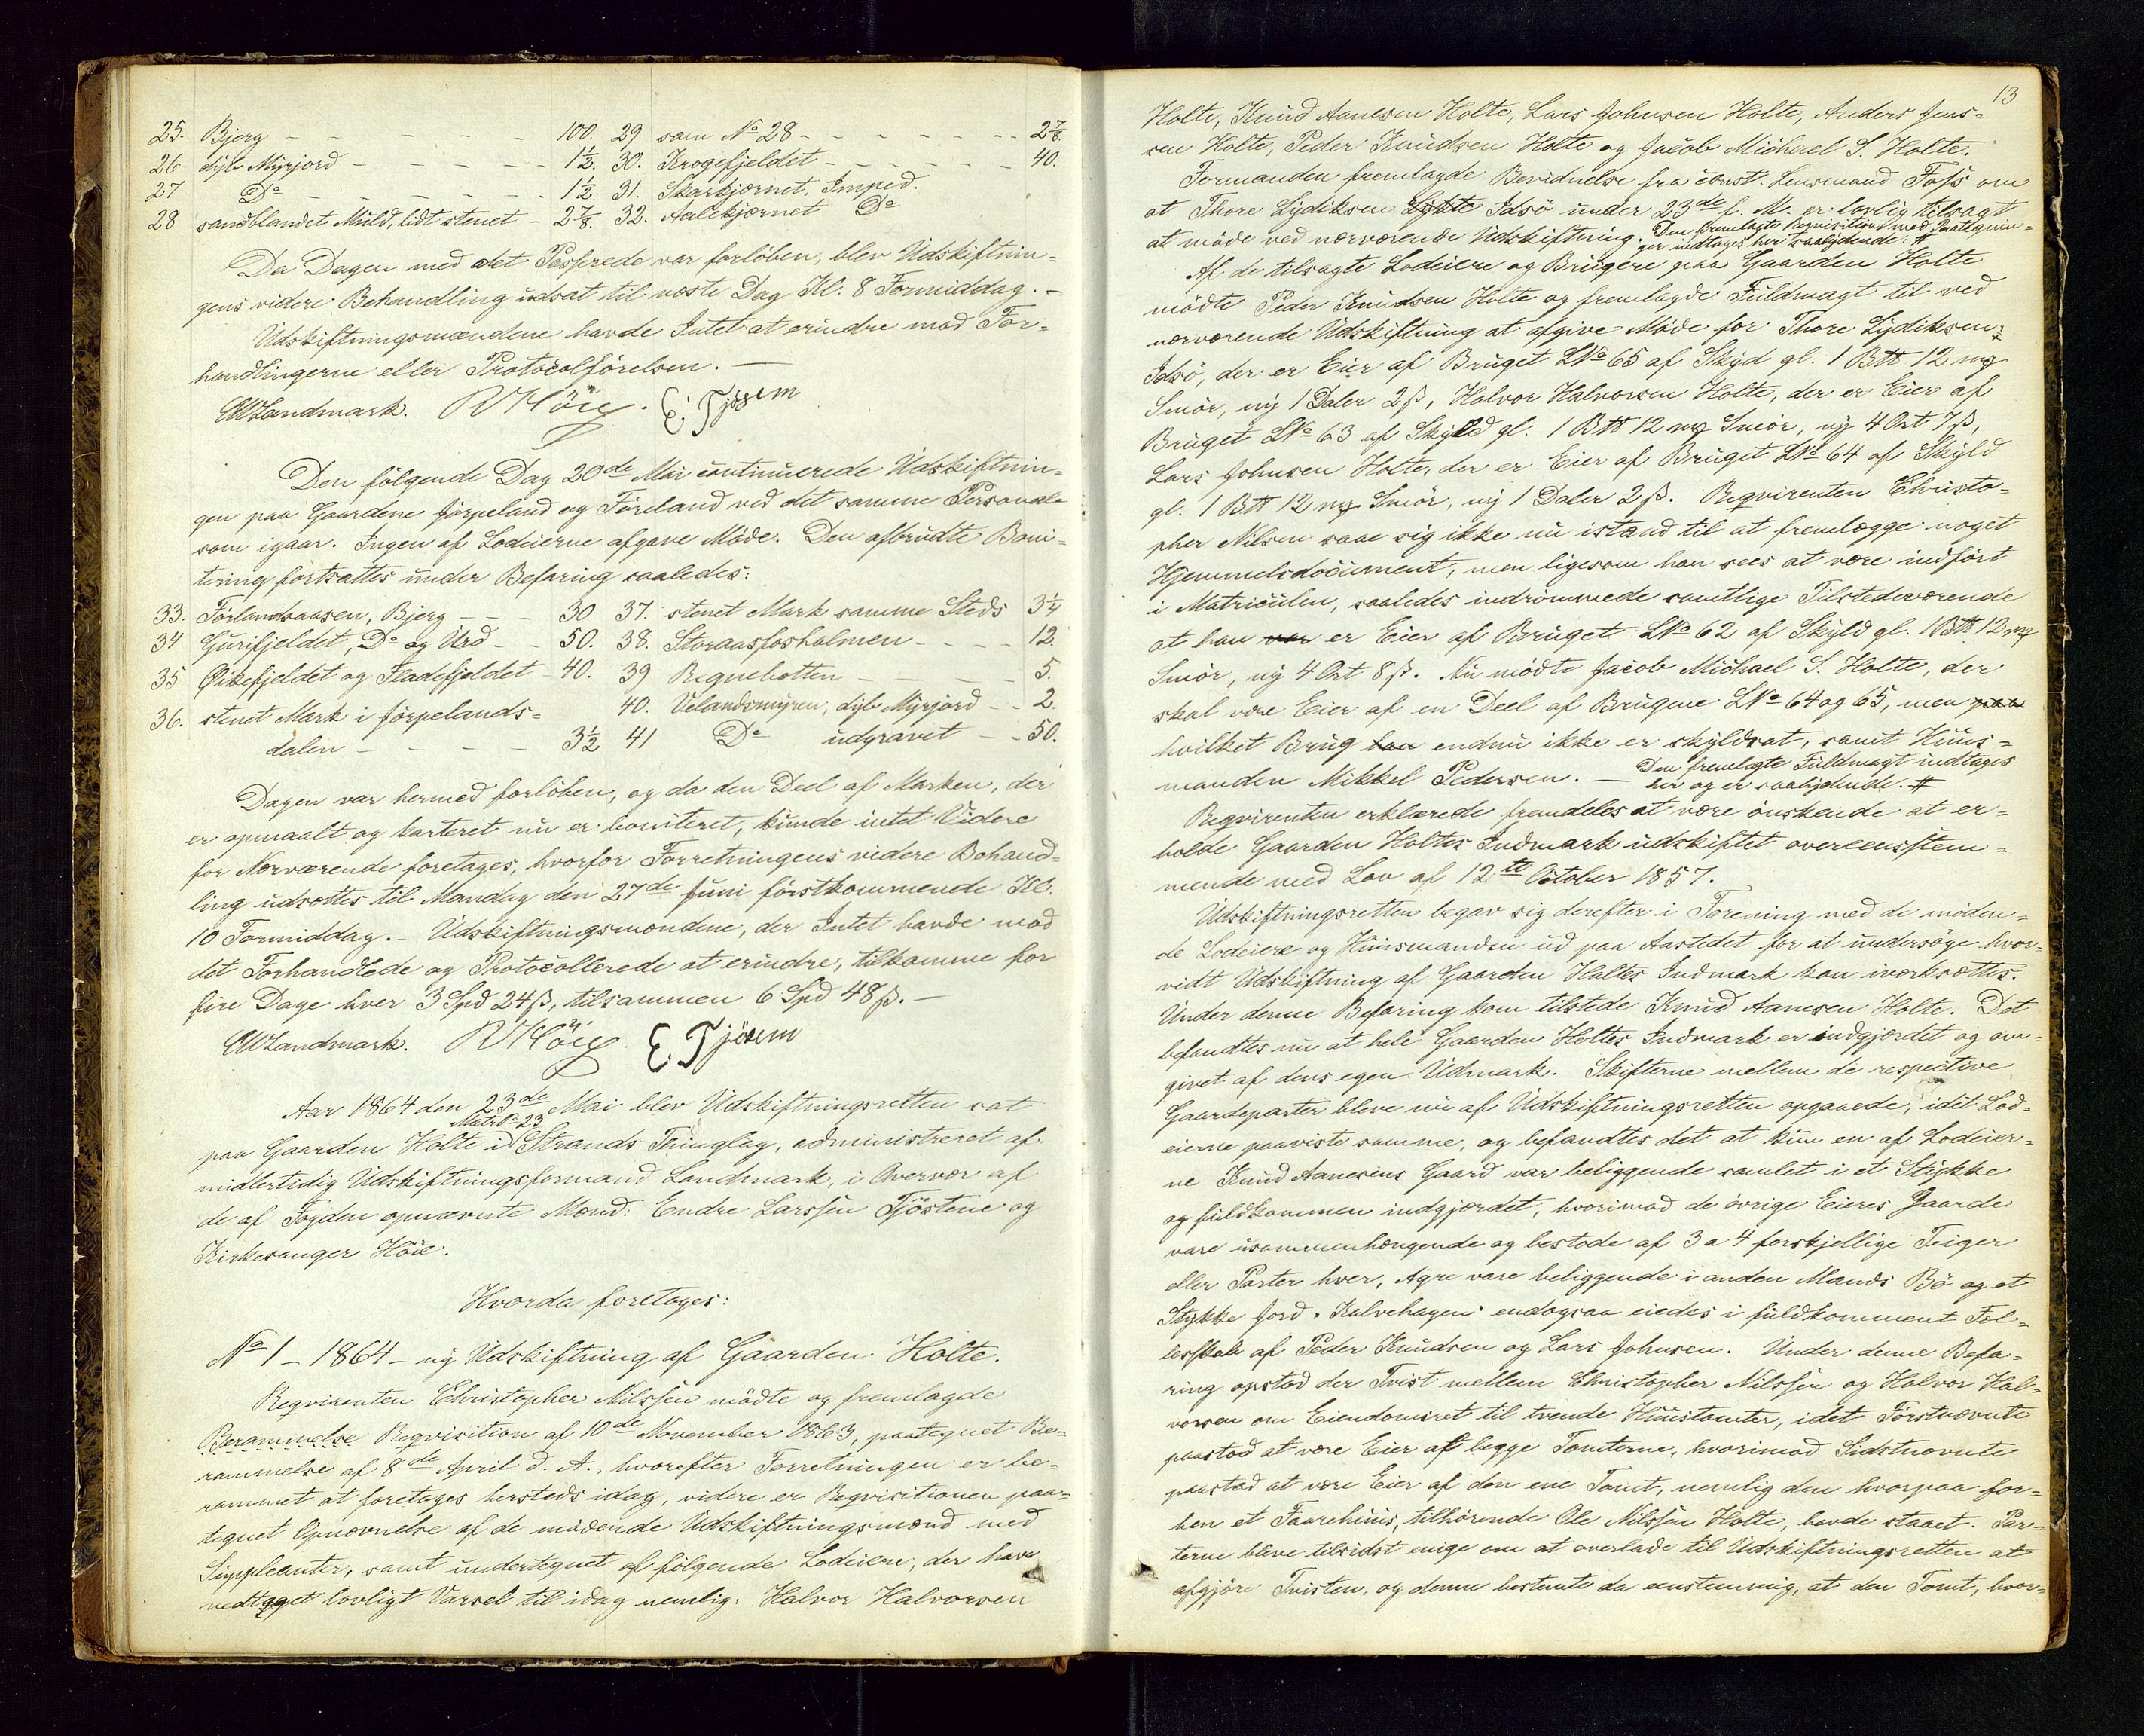 25. Bjerg - - - - - 100. 29 som No 28 - - - - - - - 2 7/8.
26 dyb Myrjord - - - - - 1 1/2. 30. Krogefjeldet - - - - - 40.
27 Do - - - - - 1 1/2. 31. Skarkjernet, Imped.
28 sandblandet Muld, lidt stenet - 2 7/8. 32. Aalekjærnet Do
Da Dagen med det Passerede var forløben, blev Udskiftnin-
gens videre Behandling udsat til næste Dag Kl. 8 Formiddag. -
Udskiftningsmændene havde Intet at erindre mod For-
handlingerne eller Protocolførelsen. -
CWLandmark. RHöie. E. Tjösem
Den følgende Dag 20de Mai continuerede Udskiftnin-
gen paa Gaardene Jørpeland og Føreland ved det samme Personale
som igaar. Ingen af Lodeierne afgave Møde. Den afbrudte Boni-
tering fortsattes under Befaring saaledes:
33. Førlandsaasen, Bjerg - - - 30 37. stenet Mark samme Steds 3 1/4
34 Gurifjeldet, Do og Urd - - 50. 38. Storaasfosholmen - - - - 12.
35 Øikefjeldet og Fladefjeldet - 40. 39 Regnebotten - - - - 5.
36. stenet Mark i Jørpelands= 40. Velandsmyren, dyb Myrjord - - 2.
dalen - - - - - 3 1/2 41 Do udgravet - - 50.
Dagen var hermed forløben, og da den Deel af Marken, der
er opmaalt og karteret nu er boniteret, kunde intet Videre
for Nærværende foretages, hvorfor Forretningens videre Behand-
ling udsættes til Mandag den 27de Juni førstkommende Kl.
10 Formiddag. - Udskiftningsmændene, der Intet havde mod
det Forhandlede og Protocollerede at erindre, tilkomme for
fire Dage hver 3 Spd 24 ß, tilsammen 6 Spd 48 ß. -
CWLandmark. RHöie. E. Tjösem
Aar 1864 den 23de Mai blev Udskiftningsretten sat
Matr No 23
paa Gaarden Holte i Strands Thinglag, administreret af
midlertidig Udskiftningsformand Landmark, i Overvær af
de af Fogden opnævnte Mænd: Endre Larssen Tjöstene og
Kirkesanger Höie.
Hvorda foretoges:
No 1 - 1864 - ny Udskiftning af Gaarden Holte.
Reqvirenten Christopher Nilssen mødte og fremlagde
Berammelse Reqvisition af 10de November 1863, paategnet Be-
rammelse af 8de April d. A., hvorefter Forretningen er be-
rammet at foretages hersteds idag, videre er Reqvisitionen paa-
tegnet Opnævnelse af de mødende Udskiftningsmænd med
Suppleanter, samt undertegnet af følgende Lodeiere, der have
vedtaget lovligt Varsel til idag nemlig: Halvor Halvorsen
13
Holte, Knud Aanesen Holte, Lars Johnsen Holte, Anders Jens-
sen Holte, Peder Knudsen Holte og Jacob Michael S. Holte.
Formanden fremlagde Bevidnelse fra const. Lensmand Foss om
at Thore Lydiksen Idsö under 23de f. M. er lovlig tilsagt
at møde ved nærværende Udskiftning. Den fremlagte Reqvisition med Paategnin-
ger indtages her saalydende: #
Af de tilsagte Lodeiere og Brugere paa Gaarden Holte
mødte Peder Knudsen Holte og fremlagde Fuldmagt til ved
nærværende Udskiftning at afgive Møde for Thore Lydiksen
Idsö, der er Eier af Bruget LNo 65 af Skyld gl. 1 Btt 12 mg
Smör, ny 1 Daler 2 ß, Halvor Halvorsen Holte, der er Eier af
Bruget LNo 63 af Skyld gl. 1 Btt 12 mg Smör, ny 4 Ort 7 ß,
Lars Johnsen Holte, der er Eier af Bruget LNo 64 af Skyld
gl. 1 Btt 12 mg Smör, ny 1 Daler 2 ß. Reqvirenten Christo-
pher Nilsen saae sig ikke nu istand til at fremlægge noget
Hjemmelsdocument, men ligesom han sees at være indført
i Matriculen, saaledes indrømmede samtlige Tilstedeværende
at han var er Eier af Bruget LNo 62 af Skyld gl. 1 Btt 12 mg
Smör, ny 4 Ort 8 ß. Nu mødte Jacob Michael S. Holte, der
skal være Eier af en Deel af Brugene LNo 64 og 65, men
hvilket Brug endnu ikke er skyldsat, samt Huus-
manden Mikkel Pedersen. - Den fremlagte Fuldmagt indtages
her og er saalydende. #
Reqvirenten erklærede fremdeles at være ønskende at er-
holde Gaarden Holtes Indmark udskiftet overeensstem-
mende med Lov af 12te October 1857.
Udskiftningsretten begav sig derefter i Forening med de møden-
de Lodeiere og Huusmanden ud paa Aastedet for at undersøge hvor-
vidt Udskiftning af Gaarden Holtes Indmark kan iværksættes.
Under denne Befaring kom tilstede Knud Aanesen Holte. Det
befandtes nu at hele Gaarden Holtes Indmark er indgjærdet og om-
givet af dens egen Udmark. Skifterne mellem de respective
Gaardeparter bleve nu af Udskiftningsretten opgaaede, idet Lod-
eierne paaviste samme, og befandtes det at kun en af Lodeier-
ne Knud Aanesens Gaard var beliggende samlet i et Stykke
og fuldkommen indgjærdet, hvorimod de øvrige Eieres Gaarde
vare usammenhængende og bestode af 3 a 4 forskjellige Teiger
eller Parter hver, Agre vare beliggende i anden Mands Bø og et
Stykke Jord "Kalvehagen" endogsaa eiedes i fuldkomment Fæl-
lesskab af Peder Knudsen og Lars Johnsen. Under denne Befa-
ring opstod der Tvist mellem Christopher Nilssen og Halvor Hal-
vorsen om Eiendomsret til tvende Huustomter, idet Førstnævnte
paastod at være Eier af begge Tomterne, hvorimod Sidstnævnte
paastod at være Eier af den ene Tomt, nemlig den hvorpaa for-
hen et Faarehuus, tilhørende Ole Nilssen Holte, havde staaet. Par-
terne bleve tilsidst enige om at overlade til Udskiftningsretten at
afgjøre Tvisten, og denne bestemte da eenstemmig, at den Tomt, hvor-